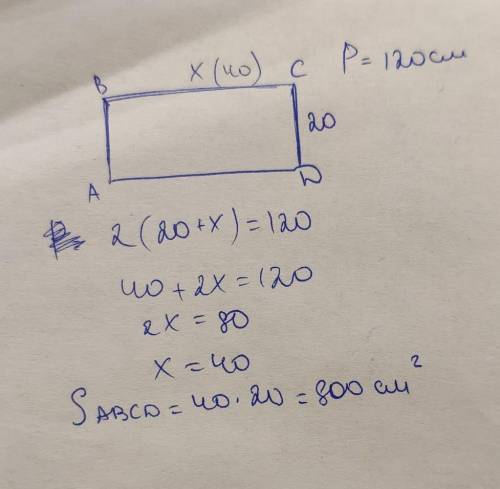 B x (40) C P = 120 см
20
A D
2(20+x) = 120
40 + 2x = 120
2x = 80
x = 40
S ABCD = 40 · 20 = 800 см²